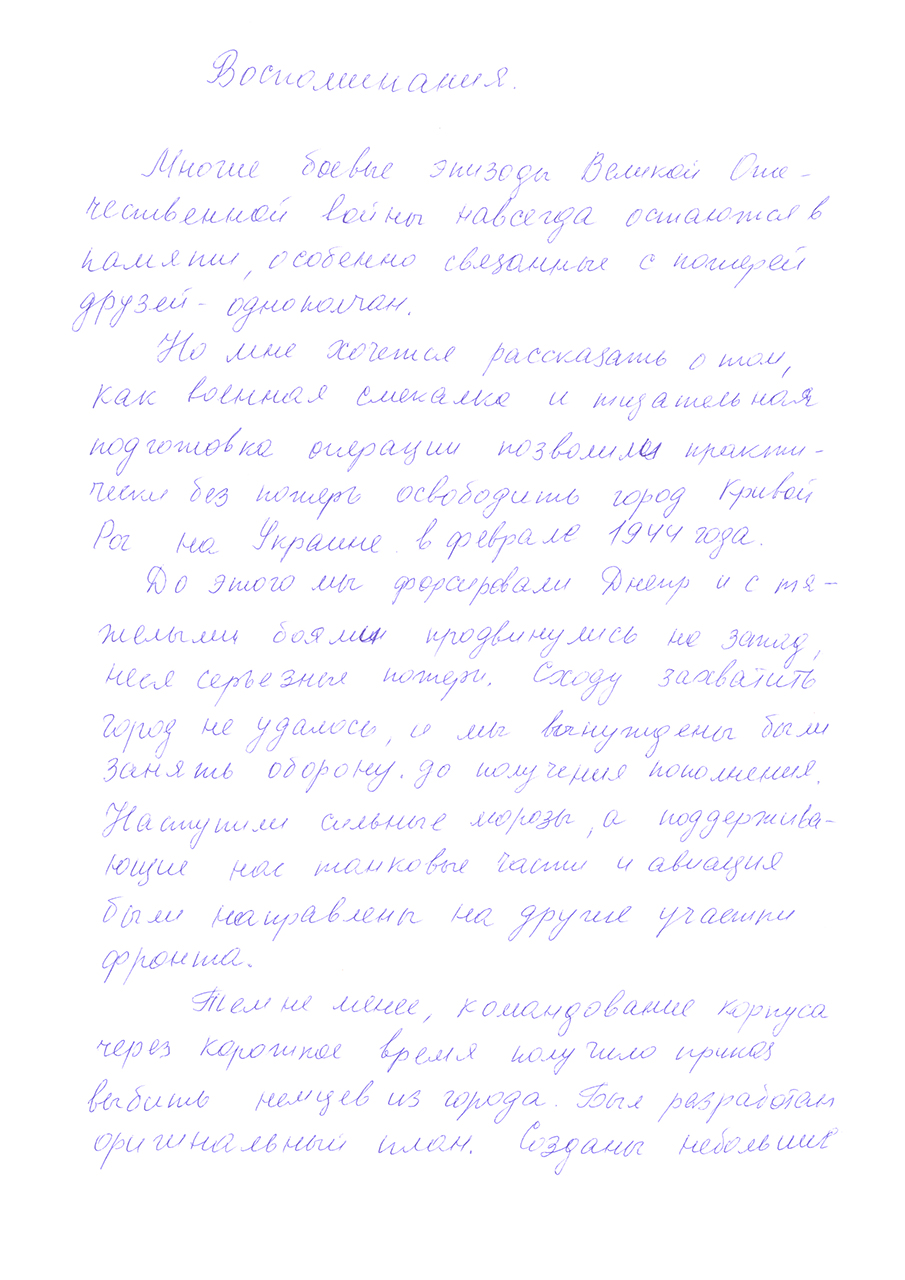 Воспоминания.
Многие боевые эпизоды Великой Оте-
чественной войны навсегда остаются в
памяти, особенно связанные с потерей
друзей - однополчан.
Но мне хочется рассказать о том,
как военная смекалка и тщательная
подготовка операции позволили практи-
чески без потерь освободить город Кривой
Рог на Украине в феврале 1944 года.
До этого мы форсировали Днепр и с тя-
желыми боями продвинулись на запад,
неся серьезные потери. Сходу захватить
город не удалось, и мы вынуждены были
занять оборону до получения пополнения.
Наступили сильные морозы, а поддержива-
ющие нас танковые части и авиация
были направлены на другие участки
фронта.
Тем не менее, командование корпуса
через короткое время получило приказ
выбить немцев из города. Был разработан
оригинальный план. Созданы небольшие